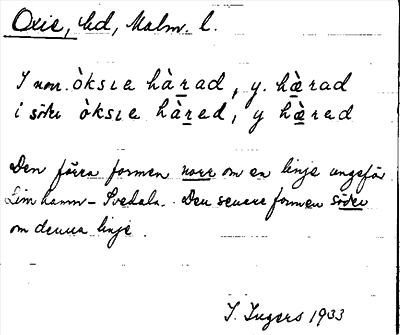 Oxie, hd, Malm. l.
I norr. òksıe hàrad, y. hærad
i söder òksıe hàred, y hæred
Den förra formen norr om en linje ungefär
Limhamn – Svedala. Den senare formen söder
om denna linje.
I. Ingers 1933